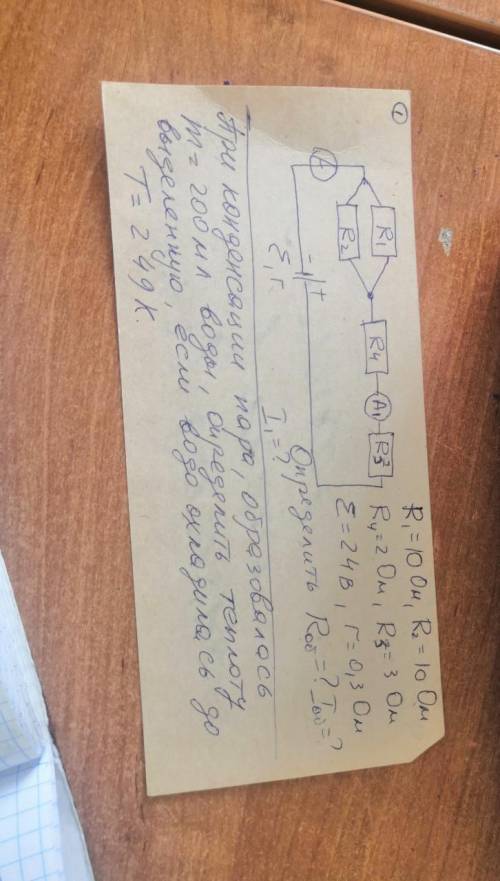 ①
R₁=10 Ом, R₂=10 Ом
R₄=2 Ом, R₃=3 Ом
ℰ=24В, r=0,3 Ом
Определить Rоб=? Iоб=?
I₁=?
R₁
R₂
R₄
A₁
R₃
A
- +
ℰ, r
При конденсации пара, образовалась
m=200мл воды, определить теплоту
выделенную, если вода охладилась до
T=249К.